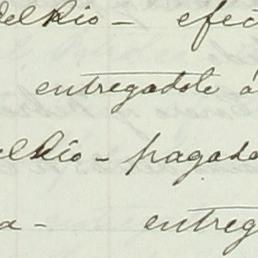 del Rio - efec
entregadole á
del Rio - pagado
a - entreg